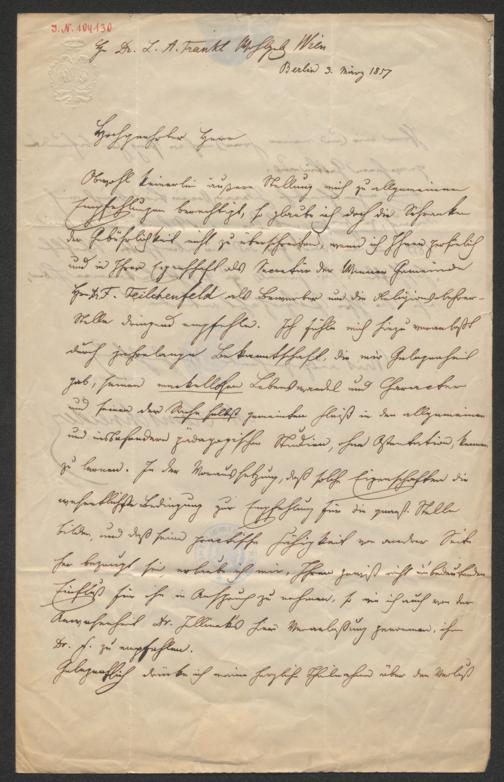 I. N. 104130
Hr Dr. L. A. Frankl Wohlgeb Wien
Berlin 3. März 1857
Hochgeehrter Herr
Obwohl keinerlei äußere Stellung mich zu allgemeinen
Empfehlungen berechtigt, so glaube ich doch die Schranken
der Gebührlichkeit nicht zu überschreiten, wenn ich Ihnen persönlich
und in Ihrer Eigenschaft als Secretär der Wiener Gemeinde
Hrn Dr. F. Feilchenfeld als Bewerber um die Religionslehrer-
Stelle dringend empfehle. Ich fühle mich hiezu veranlaßt
durch jahrelange Bekanntschaft, die mir Gelegenheit
gab, seinen makellosen Lebenswandel und Character
und seinen der Sache selbst gewidmeten Fleiß in den allgemeinen
und insbesondere pädagogischen Studien, ohne Ostentation, kennen
zu lernen. In der Voraussetzung, daß solche Eigenschaften die
wesentlichste Bedingung zur Empfehlung für die Stelle
bilden, und daß seine practische Fähigkeit von anderer Seite
her bezeugt sei, erlaube ich mir, Ihren gewiß nicht unbedeutenden
Einfluß für ihn in Anspruch zu nehmen, so wie ich auch von der
Anwesenheit Dr. Jellineks hier Veranlassung genommen, ihm
Dr. F. zu empfehlen.
Gelegentlich drücke ich meine herzliche Theilnahme über den Verlust